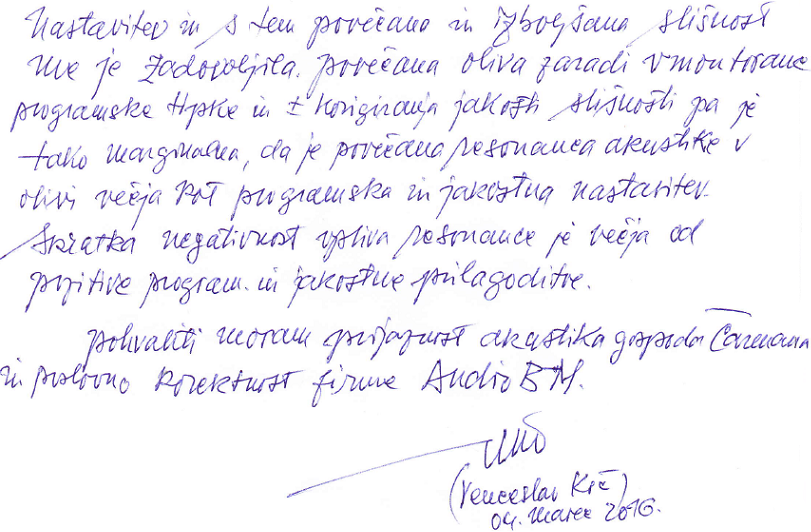 Nastavitev in s tem povečano in izboljšana slišnost
me je zadovoljila. povečana oliva zaradi vmontirane
programske tipke in ± korigiranja jakosti slišnosti pa je
tako marginalna, da je povečana resonanca akustike v
olivi večja kot programska in jakostna nastavitev.
Skratka negativnost vpliva resonance je večja od
pozitive program. in jakostne prilagoditve.
pohvaliti moram prijaznost akustika gospoda Carmana
in poslovno korektnost firme Audio BM.
(Venceslav Krč)
04. marec 2016.